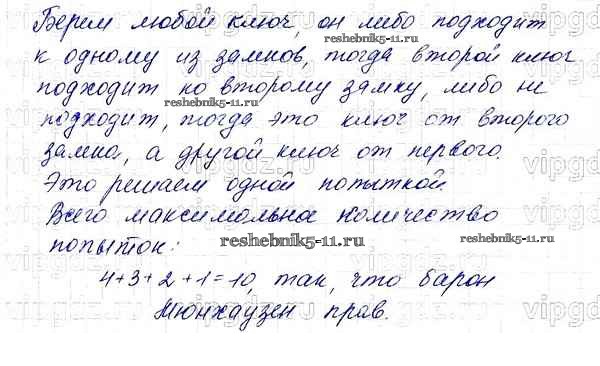 Берем любой ключ, он либо подходит
к одному из замков, тогда второй ключ
подходит ко второму замку, либо не
подходит, тогда это ключ от второго
замка, а другой ключ от первого.
Это решаем одной попыткой.
Всего максимальное количество
попыток:
4+3+2+1=10, так, что барон
Мюнхаузен прав.
reshebnik5-11.ru
reshebnik5-11.ru
reshebnik5-11.ru
reshebnik5-11.ru
vipgdz.ru